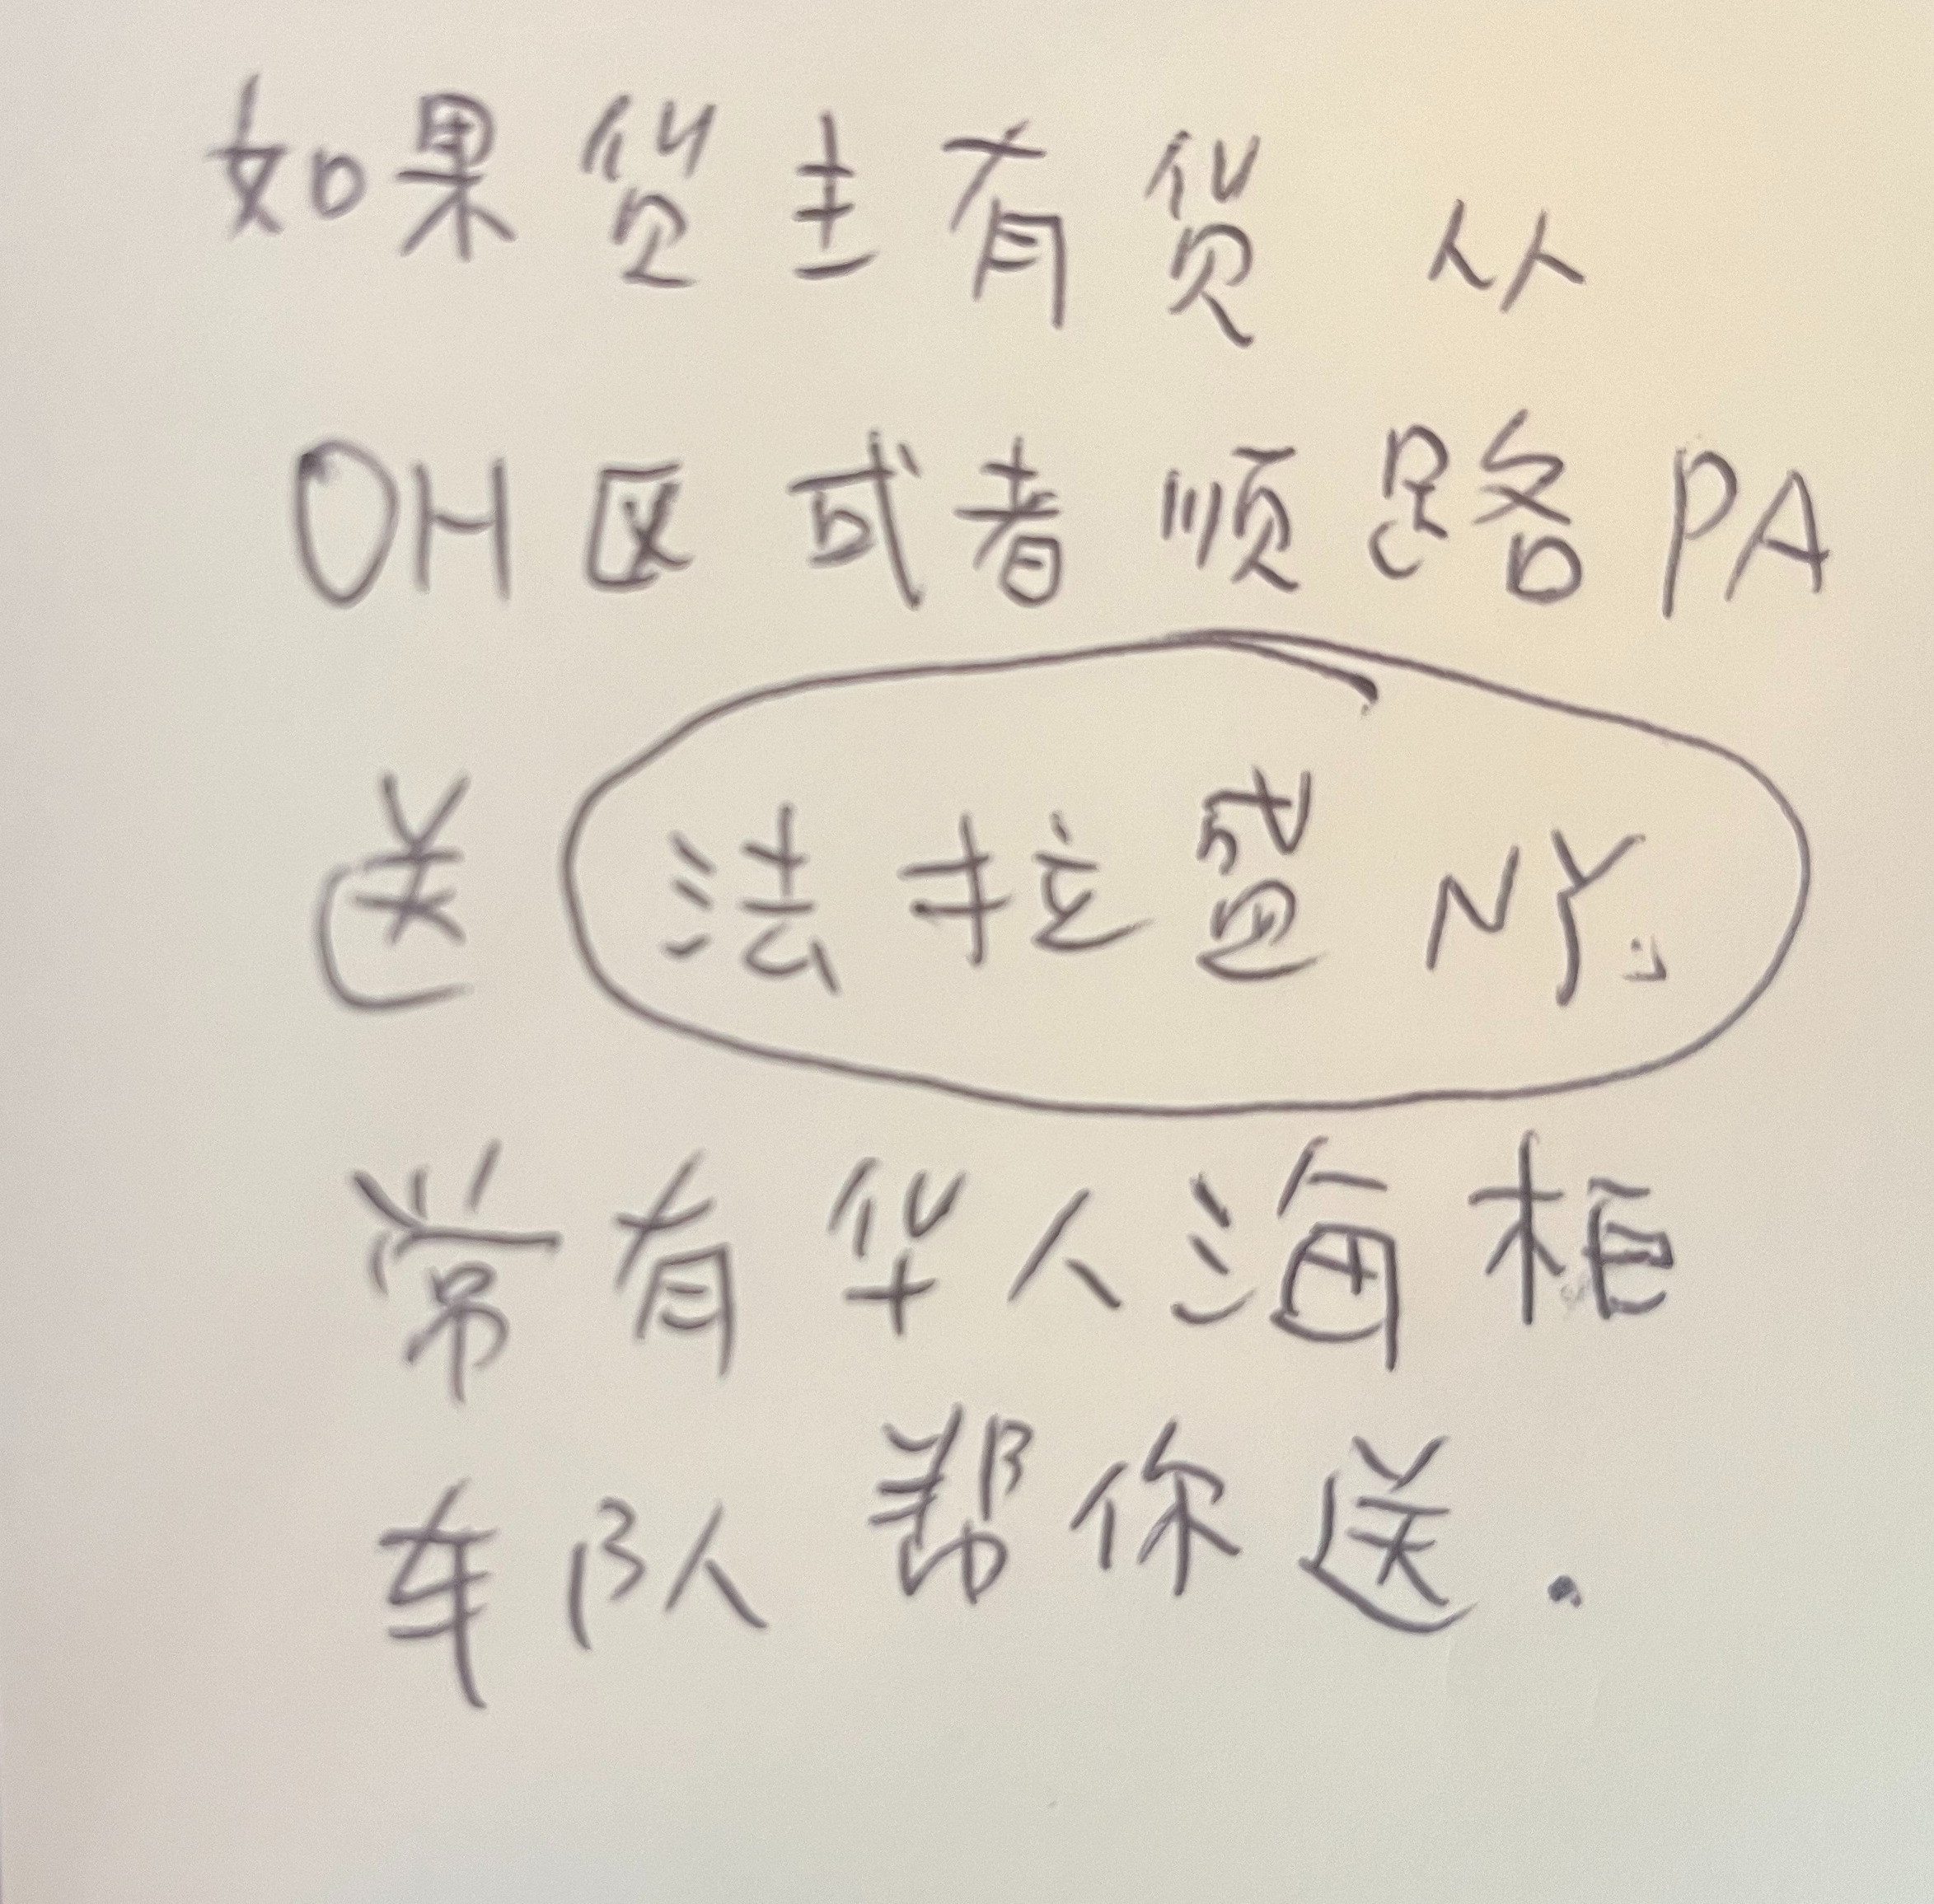 如果货主有货 从
OH区 或者 顺路PA
送 法拉盛 NY。
常有华人海柜
车队 帮你送.